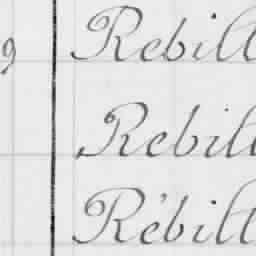 Rebill
Rebill
Rebill